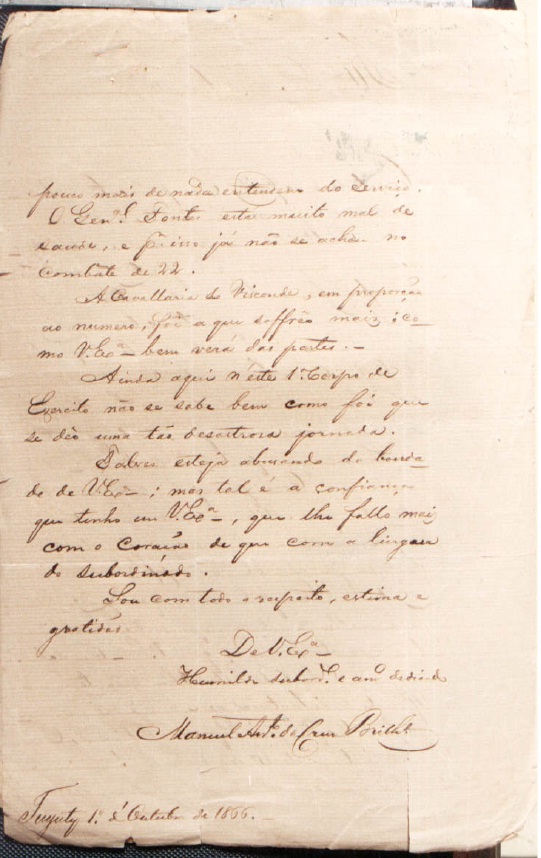 pouco mais de nada entendem do serviço.
O Gen.al Fontes está muito mal de
saude, e p.r isso já não se achou no
combate de 22.
A Cavallaria do Visconde, em proporção
ao numero, foi a que soffrêo mais; co-
mo V.Ex.a bem verá das partes. -
Ainda aqui n'este 1.º Corpo de
Exercito não se sabe bem como foi que
se dêo uma tão desastrosa jornada.
Talvez esteja abusando da bonda-
de de V.Ex.a; mas tal é a confiança
que tenho em V.Ex.a, que lhe fallo mais
com o coração do que com a lingua
do subordinado.
Sou com todo o respeito, estima e
gratidão
De V.Ex.a
Humilde subord.o e am.o dedicado
Manuel Ant.o da Cruz Brilhe
Tuyuty 1.º d'Outubro de 1866. -